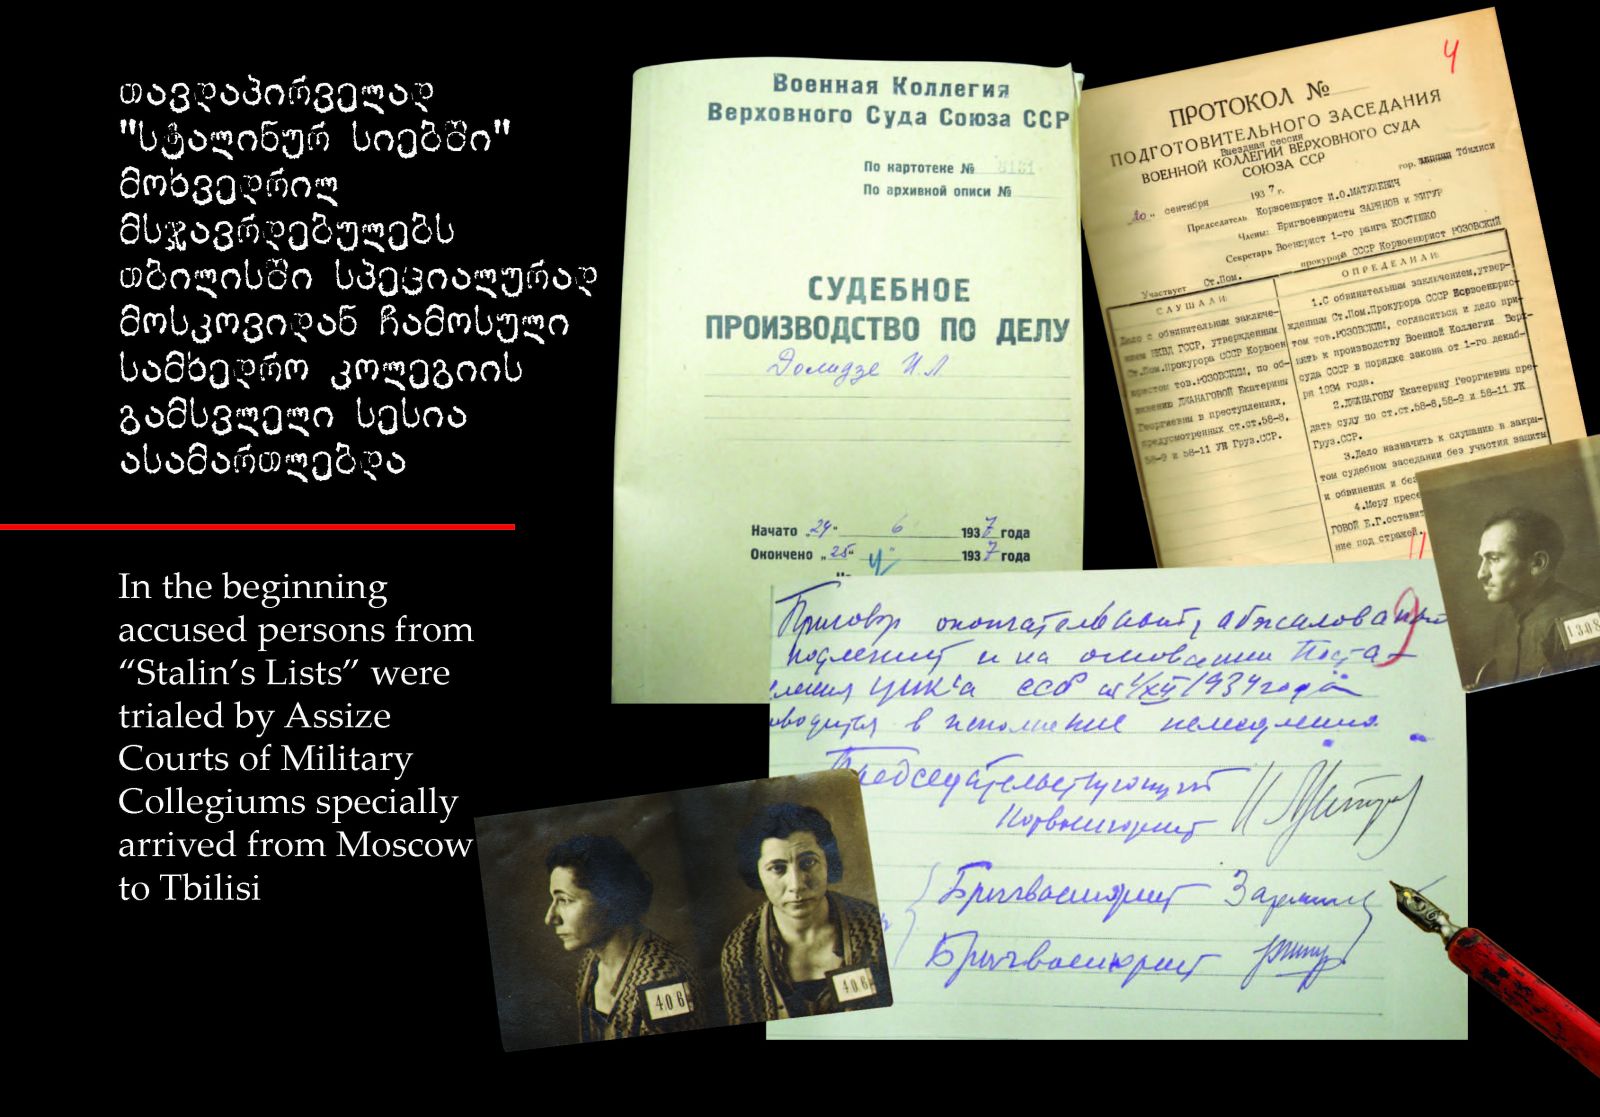 თავდაპირველად
"სტალინურ სიებში"
მოხვედრილ
მსჯავრდებულებს
თბილისში სპეციალურად
მოსკოვიდან ჩამოსული
სამხედრო კოლეგიის
გამსვლელი სესია
ასამართლებდა
In the beginning
accused persons from
“Stalin’s Lists” were
trialed by Assize
Courts of Military
Collegiums specially
arrived from Moscow
to Tbilisi
Военная Коллегия
Верховного Суда Союза ССР
По картотеке №
По архивной описи №
СУДЕБНОЕ
ПРОИЗВОДСТВО ПО ДЕЛУ
Долидзе И.Л
Начато „24“ 6 1937 года
Окончено „25“ 1937 года
4
ПРОТОКОЛ №
ПОДГОТОВИТЕЛЬНОГО ЗАСЕДАНИЯ
Выездная сессия
ВОЕННОЙ КОЛЛЕГИИ ВЕРХОВНОГО СУДА
СОЮЗА ССР
гор. Тбилиси
„20“ сентября 1937 г.
Председатель Корвоенюрист И.О.МАТУЛЕВИЧ
Члены: Бригвоенюристы ЗАРЯНОВ и ЖИГУР
Секретарь Военюрист 1-го ранга КОСТЮШКО
Участвует Ст.Пом. прокурора СССР Корвоенюрист РОЗОВСКИЙ
СЛУШАЛИ:
Дело с обвинительным заключе-
нием НКВД ГССР, утвержденным
Ст.Пом.Прокурора СССР Корвоен
юристом тов.РОЗОВСКИМ, по об-
винению ДЖАНАГОВОЙ Екатерины
Георгиевны в преступлениях,
предусмотренных ст.ст.58-8,
58-9 и 58-11 УК Груз.ССР.
ОПРЕДЕЛИЛИ:
1.С обвинительным заключением,утвер-
жденным Ст.Пом.Прокурора СССР Корвоенюрис-
том тов.РОЗОВСКИМ, согласиться и дело при-
нять к производству Военной Коллегии Верх-
суда СССР в порядке закона от 1-го декаб-
ря 1934 года.
2.ДЖАНАГОВУ Екатерину Георгиевну пре-
дать суду по ст.ст.58-8,58-9 и 58-11 УК
Груз.ССР.
3.Дело назначить к слушанию в закры-
том судебном заседании без участия защиты
и обвинения и без
4.Меру пресе
ГОВОЙ Е.Г.остави
ние под стражей.
1308
Приговор окончательный, обжалованию
подлежит и на основании Поста-
ления ЦИК'а СССР от 1/XII 1934 года
водится в исполнение немедленно.
Председательствующий
Корвоенюрист
Бригвоенюрист
Бригвоенюрист
406
406